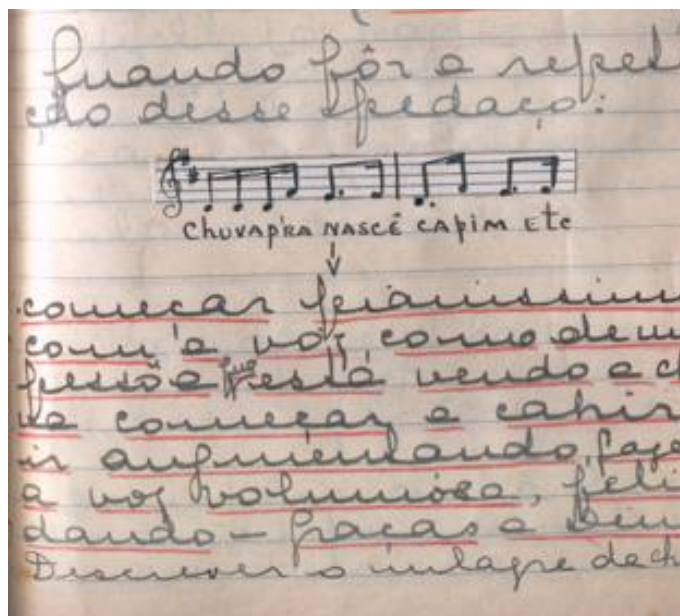 Quando fôr a repet
ção desse pedaço:
Chuva p'ra nascê capim etc
começar pianissimo
com a voz como de u
pessôa que está vendo a ch
va começar a cahir
ir augmentando, faze
a voz volumósa, feli
dando - graças a Deu
Descrever o milagre da ch